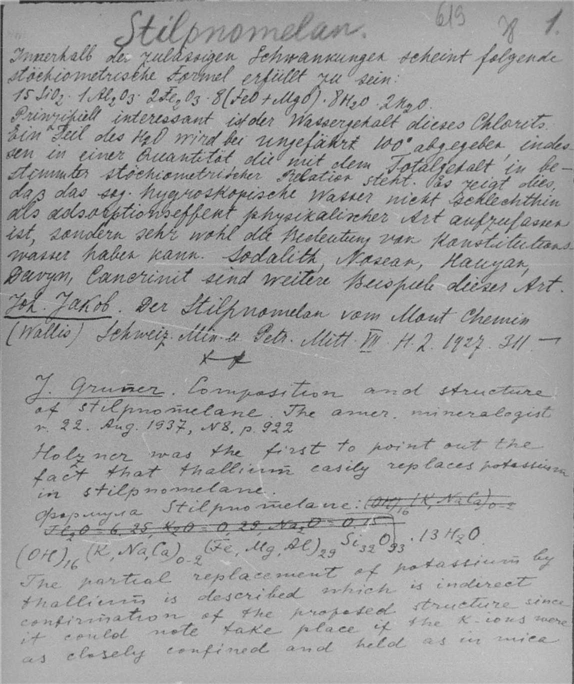 619 78 1.
Stilpnomelan.
Innerhalb der zulässigen Schwankungen scheint folgende
stöchiometrische Formel erfüllt zu sein:
15 SiO₂ · 1 Al₂O₃ · 2 Fe₂O₃ · 8 (FeO + MgO) · 8 H₂O · 2 H₂O.
Prinzipiell interessant ist der Wassergehalt dieses Chlorits.
Ein Teil des H₂O wird bei ungefährt 100° abgegeben indes-
sen in einer Quantität die mit dem Totalgehalt in be-
stimmter stöchiometrischer Relation steht. Es zeigt dies,
das das sog. hygroskopische Wasser nicht schlechthin
als adsorptionseffent physikalischer Art aufzufassen
ist, sondern sehr wohl die Bedeutung von Konstitutions
wasser haben kann. Sodalith, Nosean, Hauyan,
Davyn, Cancrinit sind weitere Beispiele dieser Art.
Joh. Jakob. Der Stilpnomelan vom Mont Chemin
(Wallis) Schweiz. Min. u. Petr. Mitt. VII. H. 2. 1927. 311. —
J. Gruner. Composition and structure
of stilpnomelane. The amer. mineralogist
v. 22. Aug. 1937, N8, p. 922
Holzner was the first to point out the
fact that thallium easily replaces potassium
in stilpnomelane.
Формула Stilpnomelane: (OH)₁₆ (K, NaCa)₀₋₂
Tl₂O = 6,25, K₂O = 0,29, Na₂O = 0,15
(OH)₁₆ (K, Na,Ca)₀₋₂ (Fe, Mg, Al)₂₉ Si₃₂O₉₃ · 13 H₂O.
The partial replacement of potassium by
thallium is described which is indirect
confirmation of the proposed structure since
it could note take place if the K-ions were
as closely confined and held as in mica